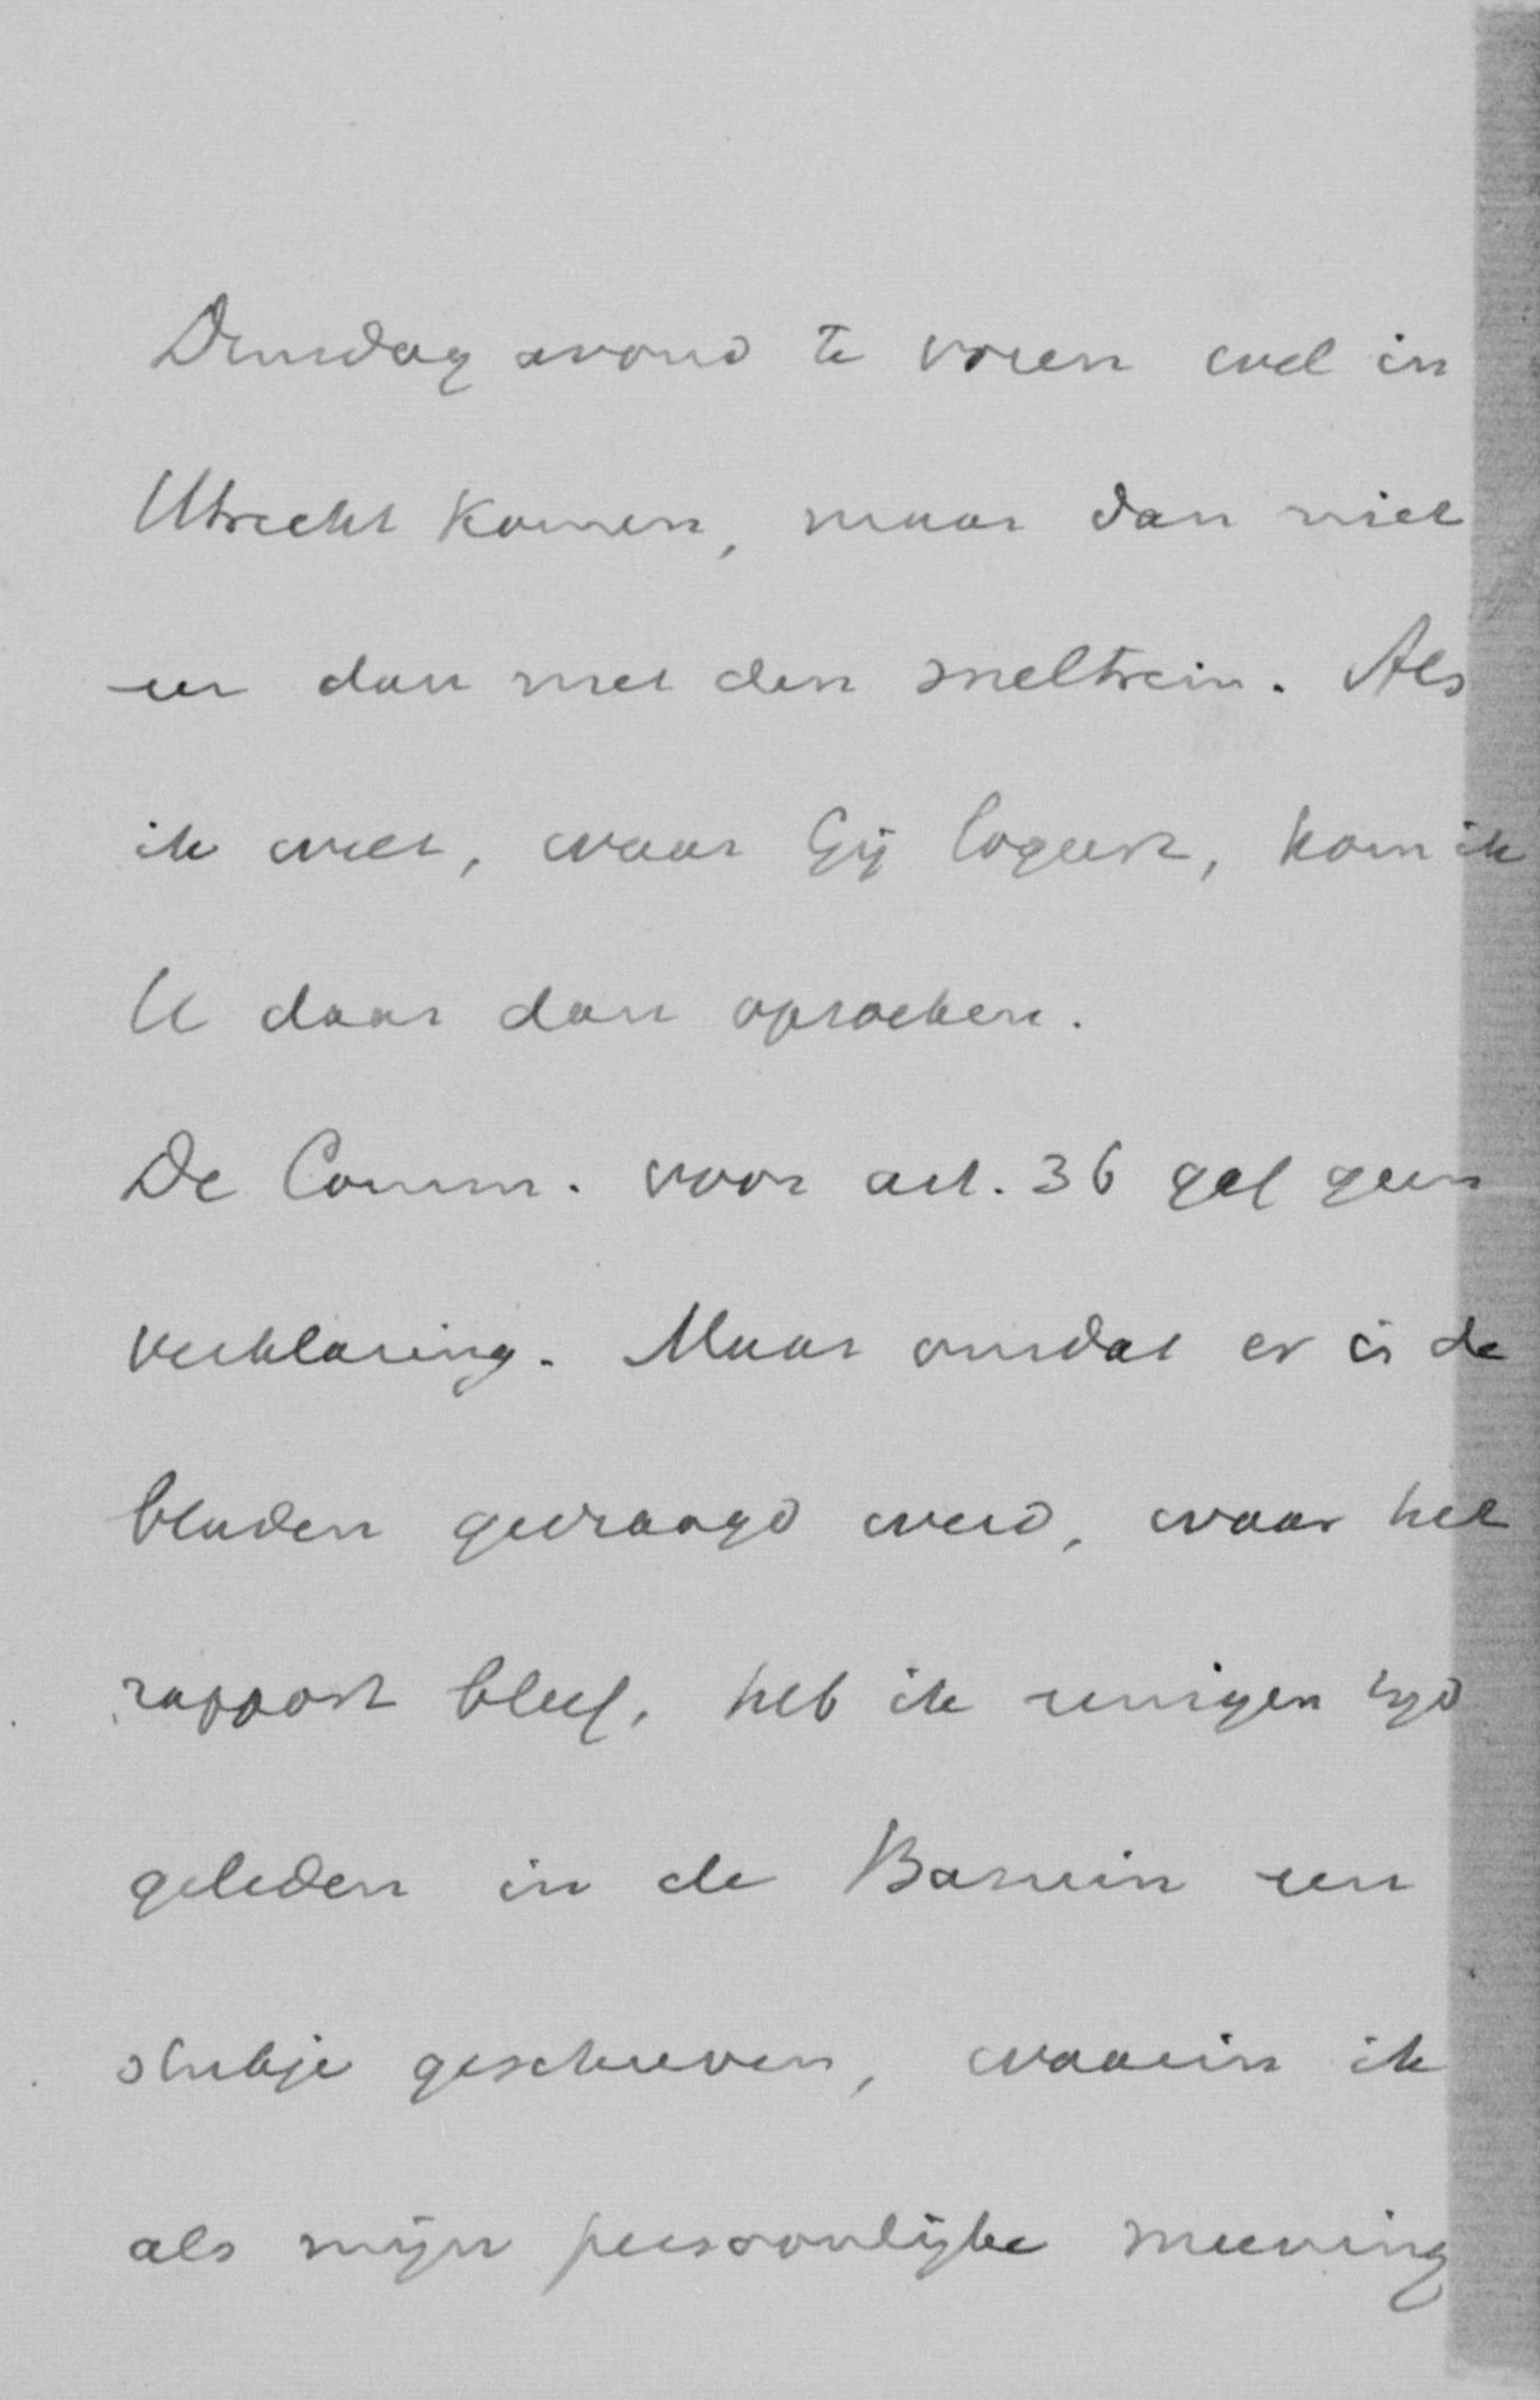 Dinsdag avond te voren wel in
Utrecht komen, maar dan niet
en dan met den sneltrein. Als
ik weet, waar Gij logeert, kom ik
U daar dan opzoeken.
De Comm. voor art. 36 gaf geen
verklaring. Maar omdat er in de
bladen gevraagd werd, waar het
rapport bleef, heb ik eenigen tijd
geleden in de Bazuin een
stukje geschreven, waarin ik
als mijn persoonlijke meening